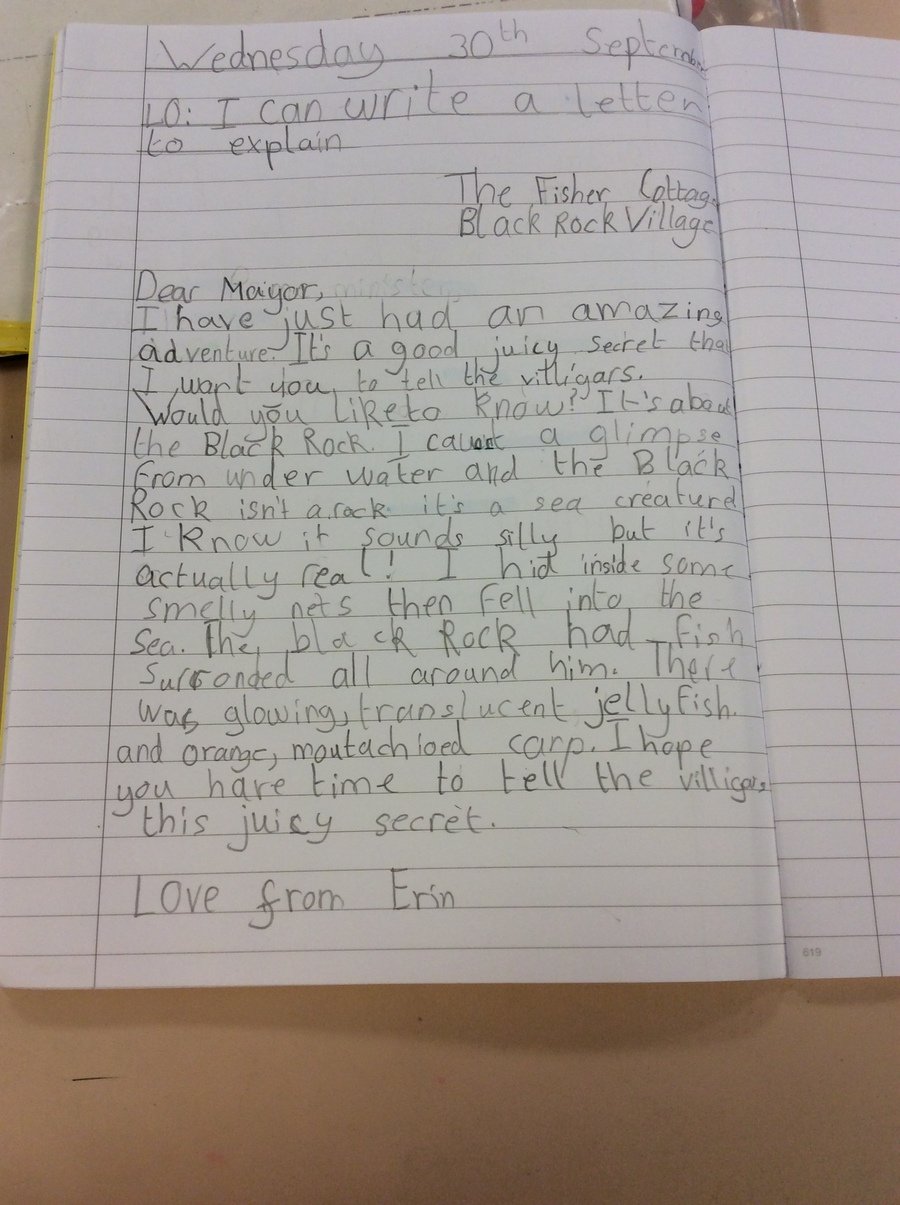 Wednesday 30th September
LO: I can write a letter
to explain
The Fisher Cottage
Black Rock Village
Dear Mayor,
I have just had an amazing
adventure. It's a good juicy secret that
I want you to tell the villigars.
Would you like to know? It's about
the Black Rock. I cauet a glimpse
from under water and the Black
Rock isn't a rock it's a sea creature
I know it sounds silly but it's
actually real! I hid inside some
smelly nets then fell into the
sea. The black Rock had fish
surronded all around him. There
was glowing, translucent jellyfish.
and orange, moutachioed carp. I hope
you have time to tell the villigars
this juicy secret.
Love from Erin
619